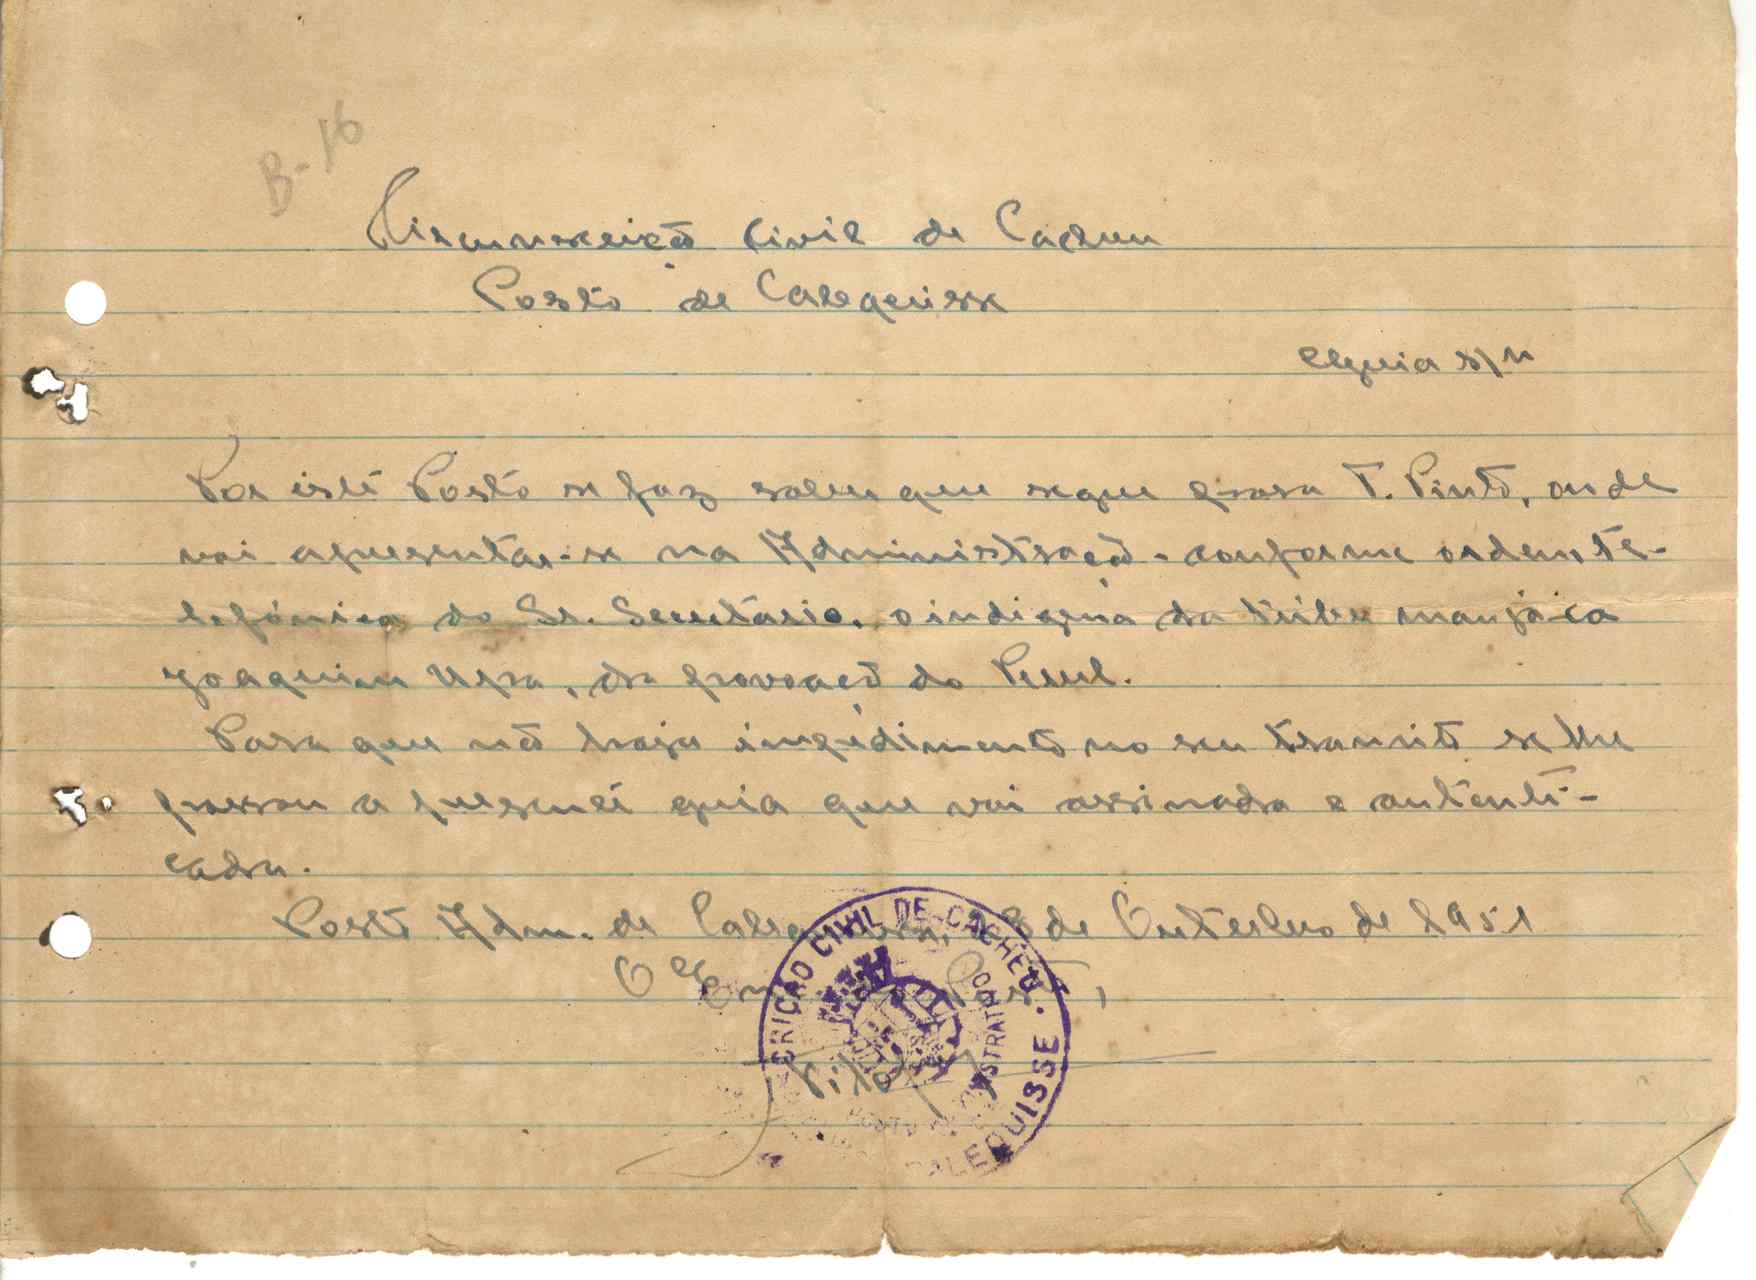 B-16
Circunscrição Civil de Cacheu
Posto de Calequisse
Guia s/n
Por êste Posto se faz saber que segue para T. Pinto, onde
vai apresentar-se na Administração - conforme ordem te-
lefónica do Sr. Secretário, o indigena da tribu manjaca
Joaquim, da povoação do
Para que não haja impedimento no seu transito se lhe
passou a presente guia que vai assinada e autenti-
cada.
Posto Adm. de Calequisse, de Outubro de 1951
O Posto,
CRIÇÃO CIVIL DE CACHEU
CALEQUISSE